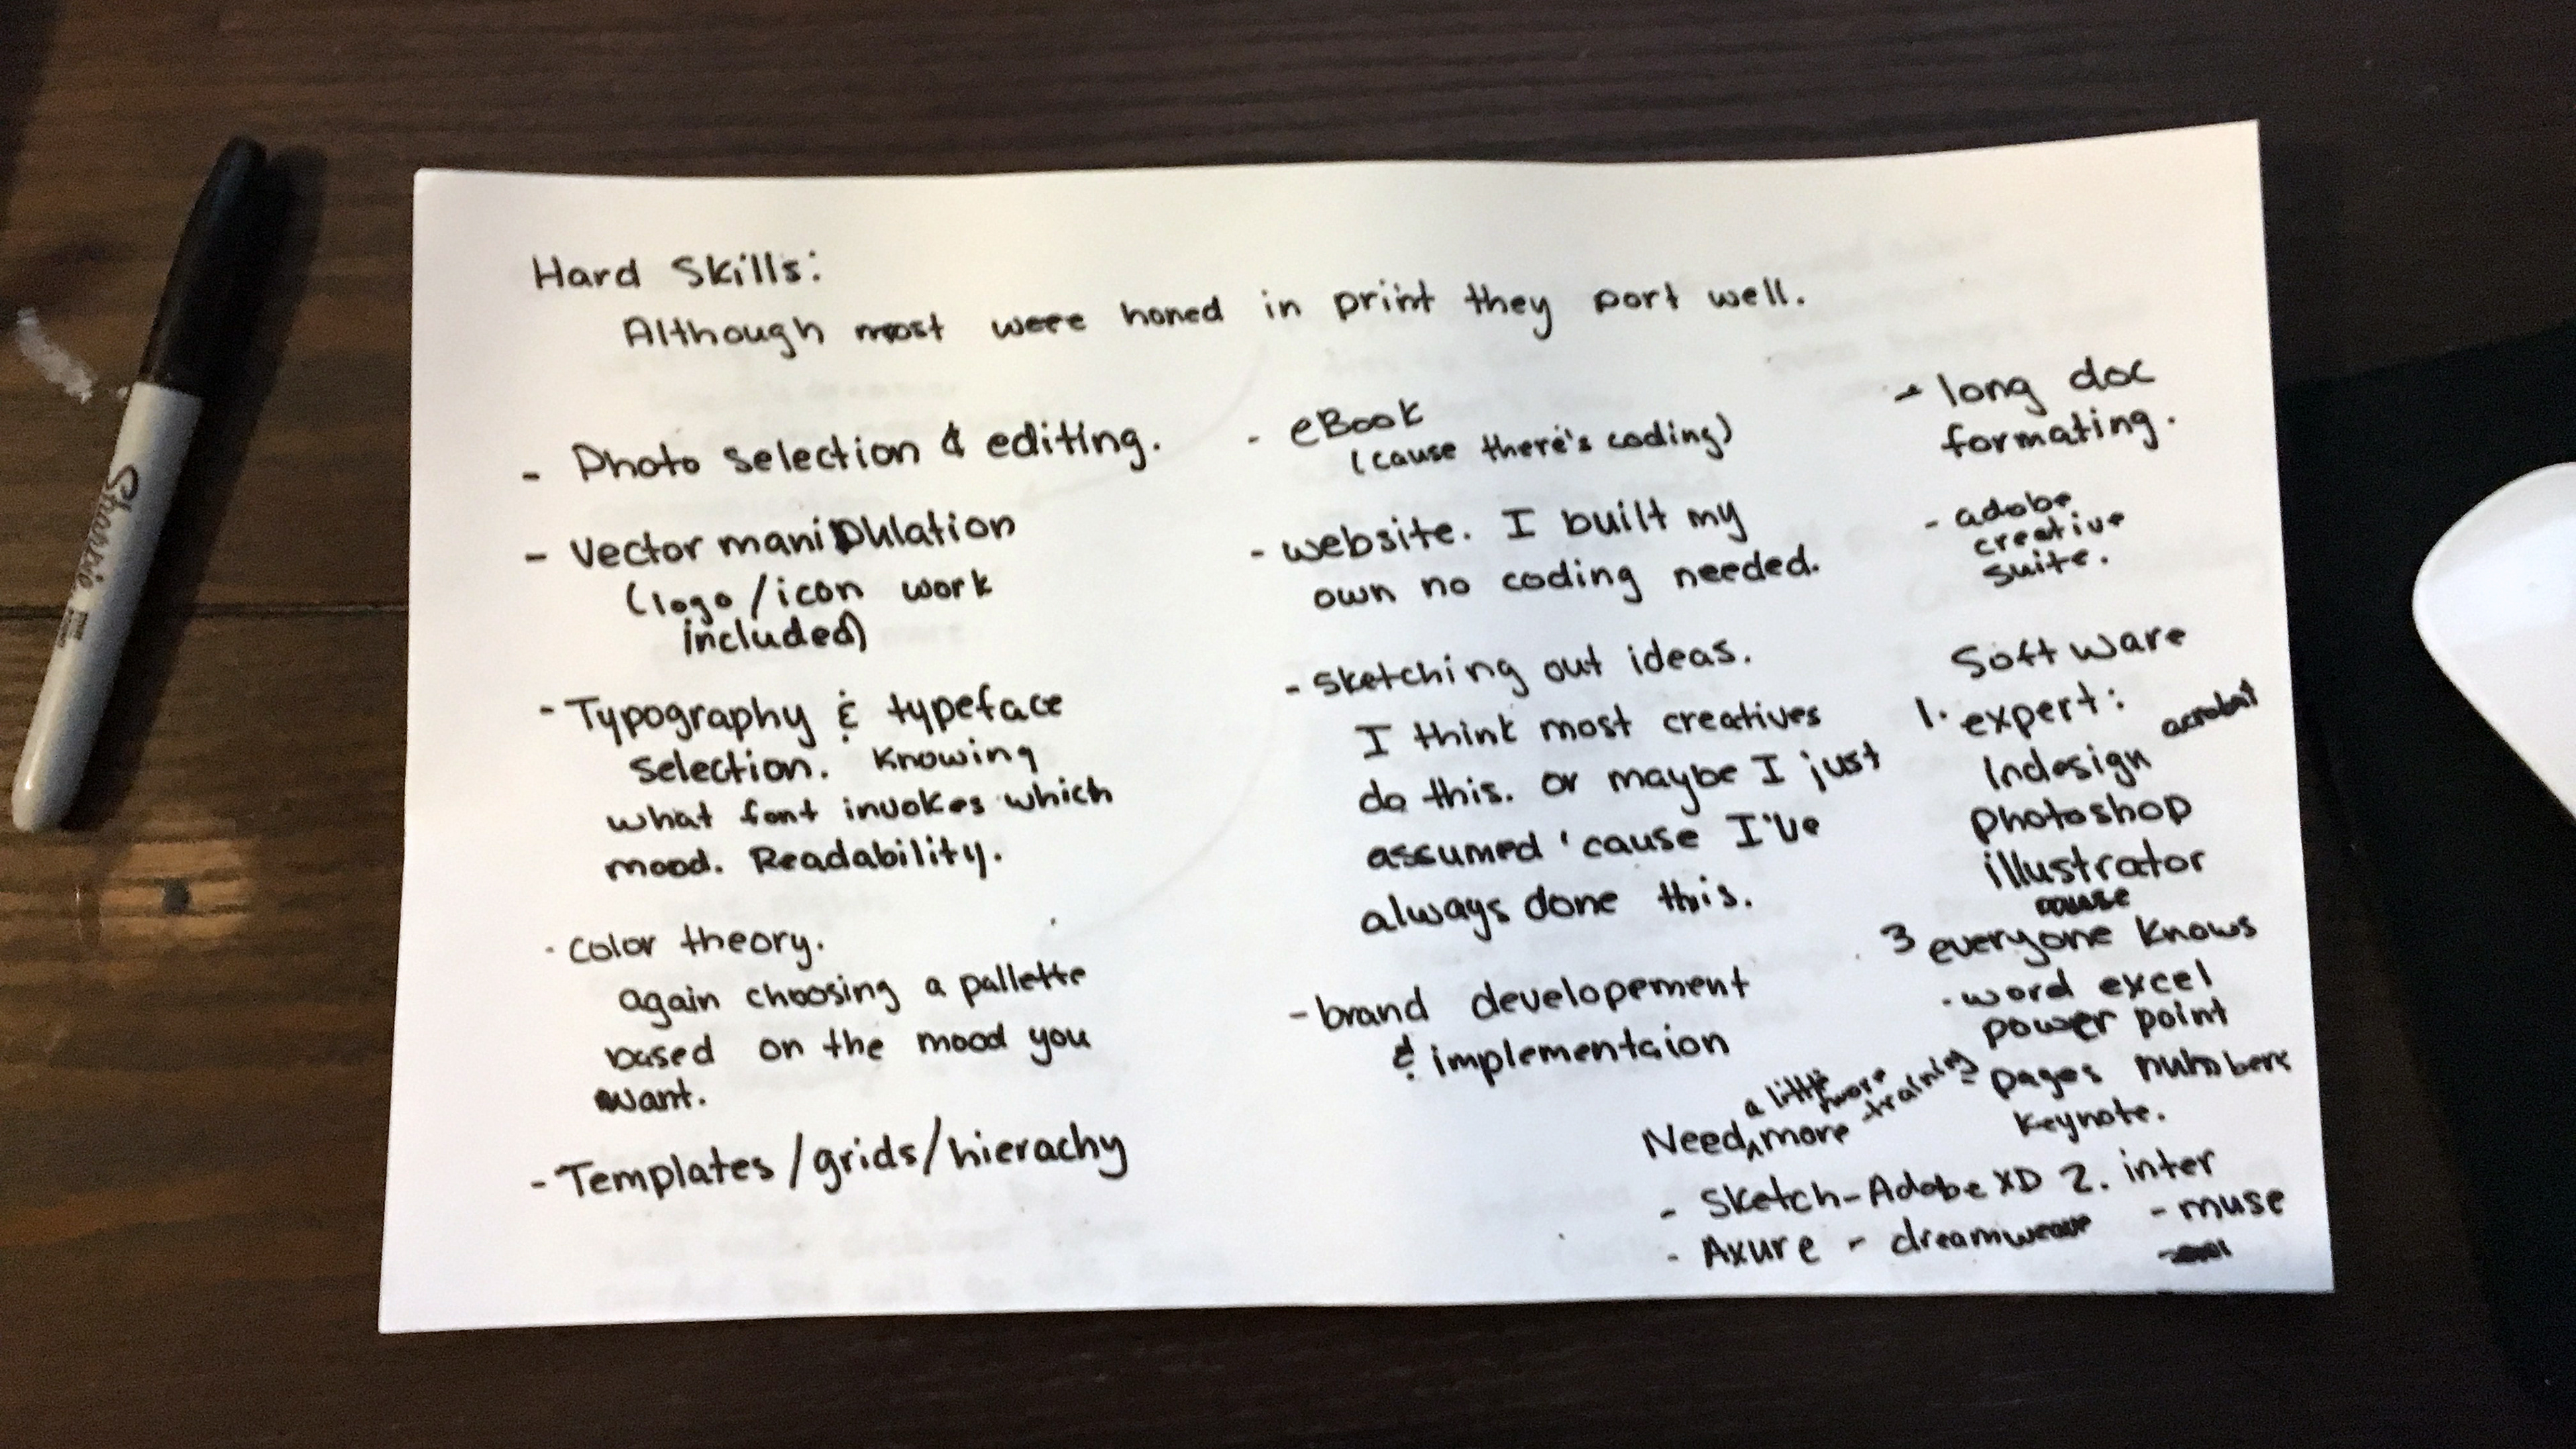 Hard Skills:
Although most were honed in print they port well.
- Photo selection & editing.
- Vector maniphlation
(logo/icon work
included)
- Typography & typeface
selection. Knowing
what font invokes which
mood. Readability.
- color theory.
again choosing a pallette
based on the mood you
want.
- Templates/grids/hierachy
- eBook
(cause there's coding)
- website. I built my
own no coding needed.
- sketching out ideas.
I think most creatives
do this. or maybe I just
assumed 'cause I've
always done this.
- brand developement
& implementaion
- long doc
formating.
- adobe
creative
suite.
Software
1. expert:
Indesign acrobat
photoshop
illustrator
cause
3 everyone knows
- word excel
power point
- pages numbers
keynote.
a little
more
training
Need, more
- Sketch-Adobe XD
- Axure - dreamweave
2. inter
- muse
Sharpie